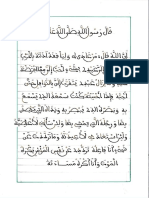 قال رسول الله صلى الله
إن الله قال من عادى لي وليا فقد آذنته بالحرب
وما تقرب إلي عبدي بشيء أحب إلي
عبدي يتقرب إلي بالنوافل حتى
أحبه فإذا أحببته كنت سمعه الذي يسمع
به وبصره الذي يبصر به ويده التي يبطش
بها ورجله التي يمشي بها وإن سألني لأعطينه
ولئن استعاذني لأعيذنه وما ترددت عن
شيء أنا فاعله ترددي عن نفس المؤمن يكره
الموت وأنا أكره مساءته